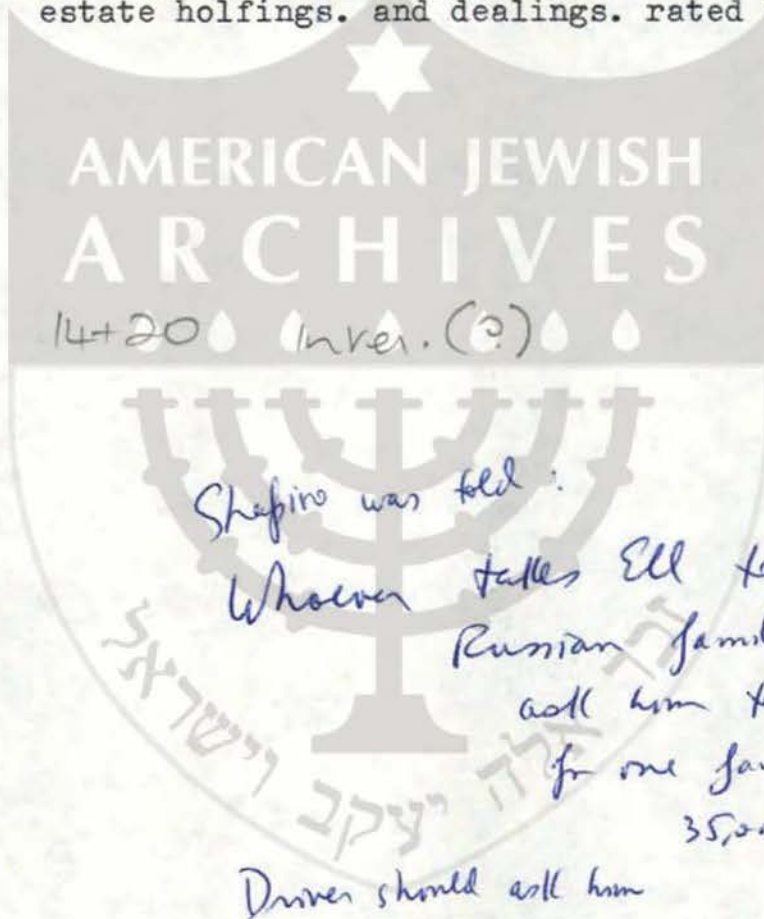 estate holfings. and dealings. rated
AMERICAN JEWISH
ARCHIVES
14+20 Inver. (?)
Shapiro was told :
Whoever takes Ell
Russian
ask him
for one
35,00
Driver should ask him
אלה יעקב וישראל